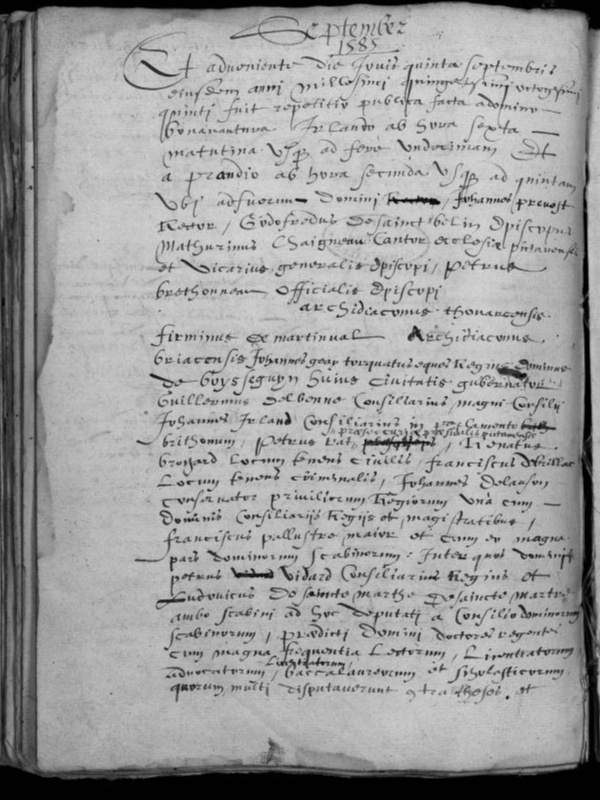 September
1585
Et adveniente die Jovis quinta septembris
eiusdem anni millesimi quingetesimi octogesimi
quinti fuit repetitio publica facta a domino
bonaventura Irlando ab hora sexta
matutina usq ad fere undecimam Et
a prandio ab hora secunda usq ad quintam
Ubi adfuerunt domini Johannes prevost
Rector, Godofredus de sainct belin episcopus
Mathurinus Chaigneau Cantor ecclesiæ pictavensis
et vicarius generalis episcopi, petrus
brethonneau officialis episcopi
archidiaconus thouarcensis
firminus de martinval Archidiaconus
briacensis Johannes torquatus eques Regius dominus
de boysseguyn huius Civitatis gubernator
Guillermus delbenne Consiliarius magni Consilii
Johannes Irland Consiliarius in parlamento
præses curiæ præsidialis pictavensis
brithonum, petrus rat, Renatus
brogard Locum tenens civilis, franciscus de brillac
Locum tenens criminalis, Johannes delaason
conservator privilicrum Regiorum una cum
dominis Consiliariis Regiis et magistratibus,
franciscus pallustre maior et cum eo magna
pars dominorum scabinorum: Inter quos dominus
petrus vidard Consiliarius Regius et
Ludovicus de saincte marthe
ambo scabini ad hoc deputati a consilio dominorum
scabinorum, prædicti domini doctores regentes
cum magna frequentia Lectorum, Licentiatorum
Licentiatorum,
advocatorum, baccalaureorum et scholasticorum,
quorum multi disputaverunt contra theses, et